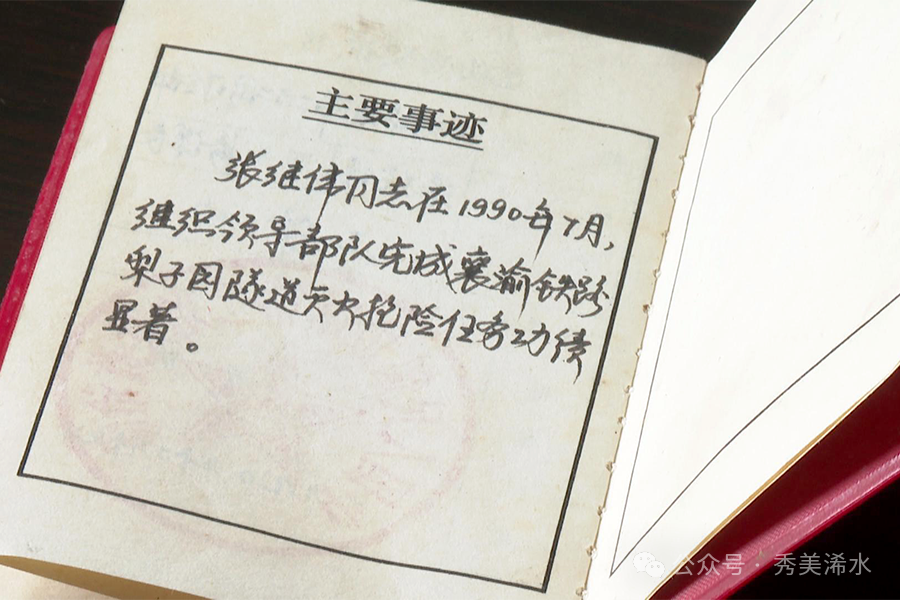 主要事迹
张继伟同志在1990年7月,
组织领导部队完成襄渝铁路
梨子园隧道灭火抢险任务功绩
显著。
公众号·秀美浠水